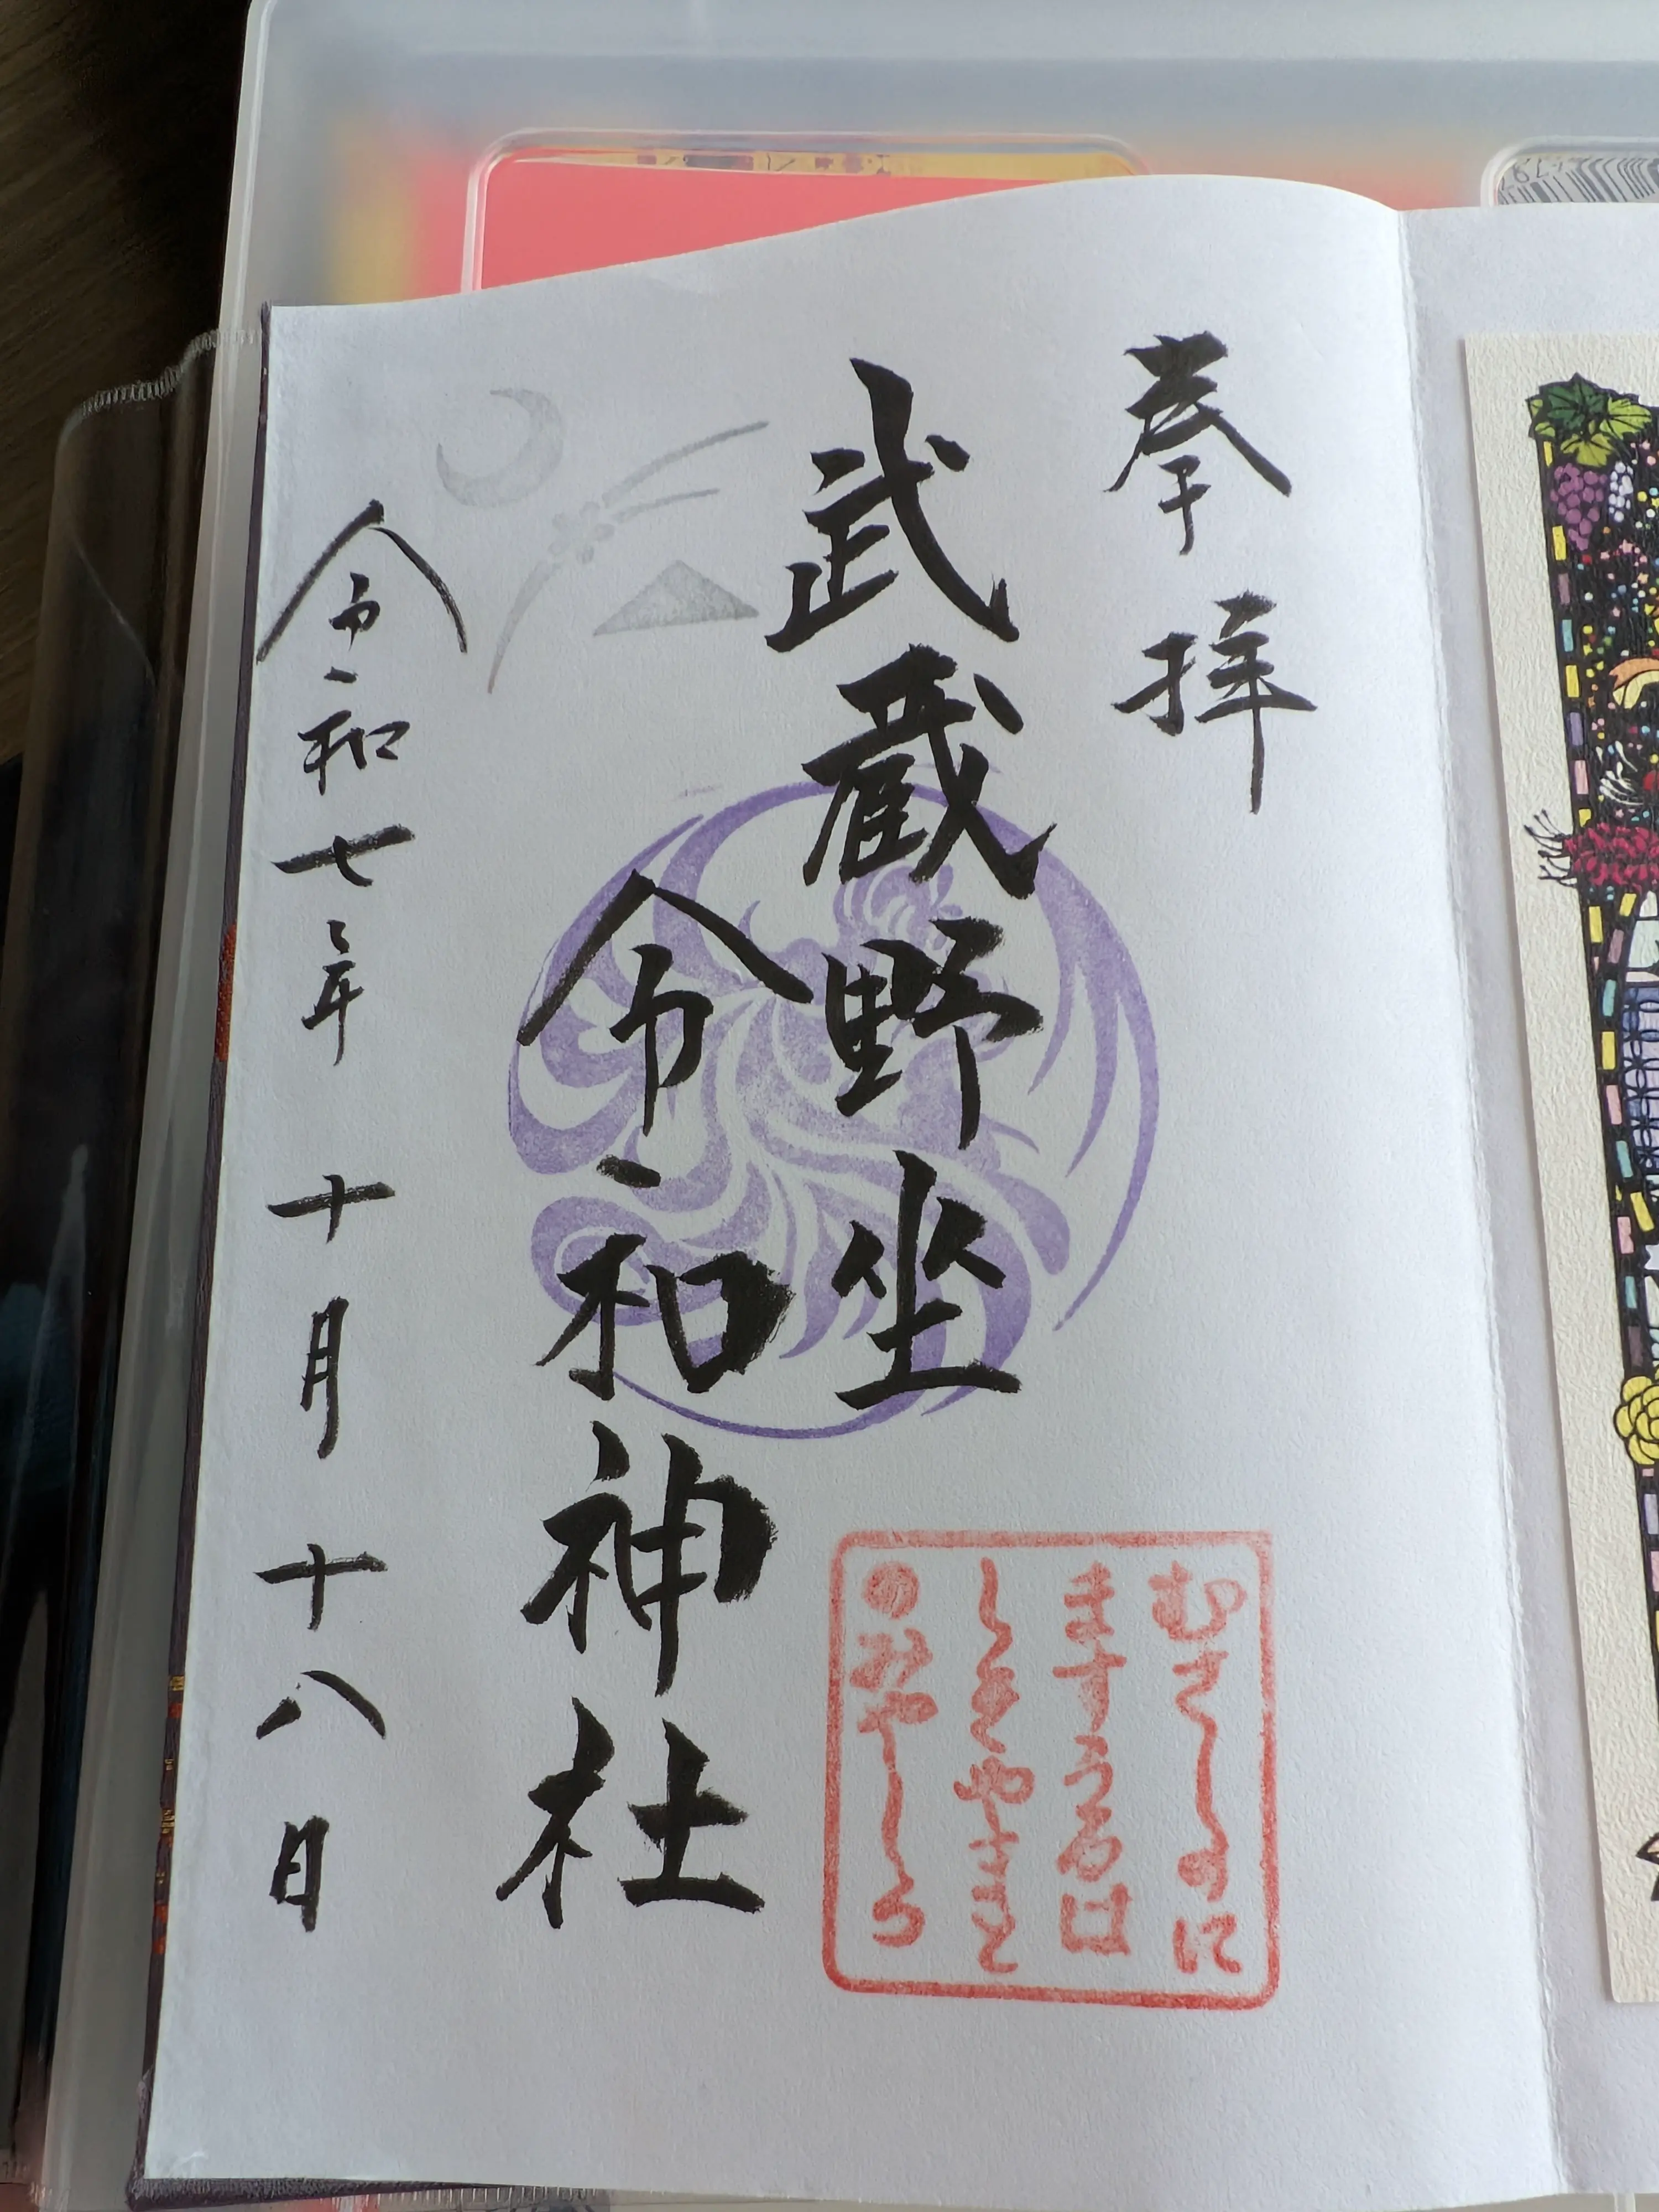 奉拝
武蔵野坐
令和神社
令和七年 十月 十八日
むさしのに
ますうるは
しきやまと
のみやしろ